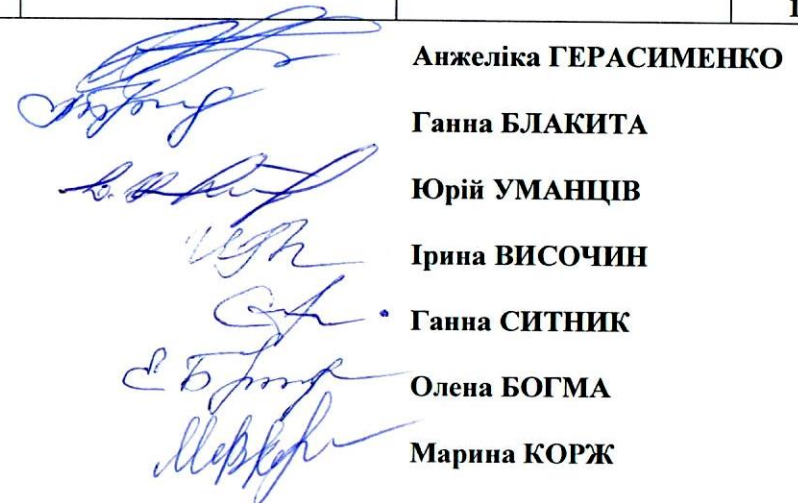 1
Анжеліка ГЕРАСИМЕНКО
Ганна БЛАКИТА
Юрій УМАНЦІВ
Ірина ВИСОЧИН
Ганна СИТНИК
Олена БОГМА
Марина КОРЖ